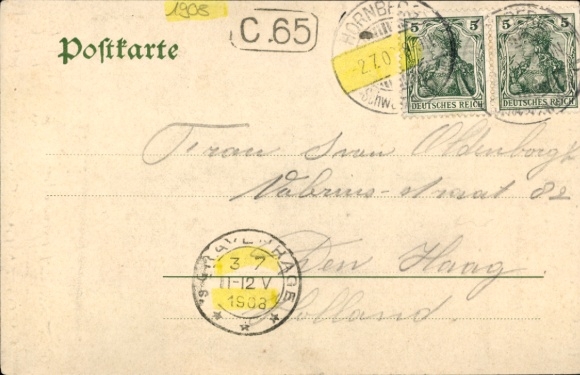 1908
C.65
Postkarte
HORNBERG
2.7.0
SCHW
5 5 5 5
DEUTSCHES REICH DEUTSCHES REICH
Frau Ivan Oldenborgh
Valerius-straat 82
'S GRAVENHAGE
3 7
11-12 V
1908
Den Haag.
Holland.